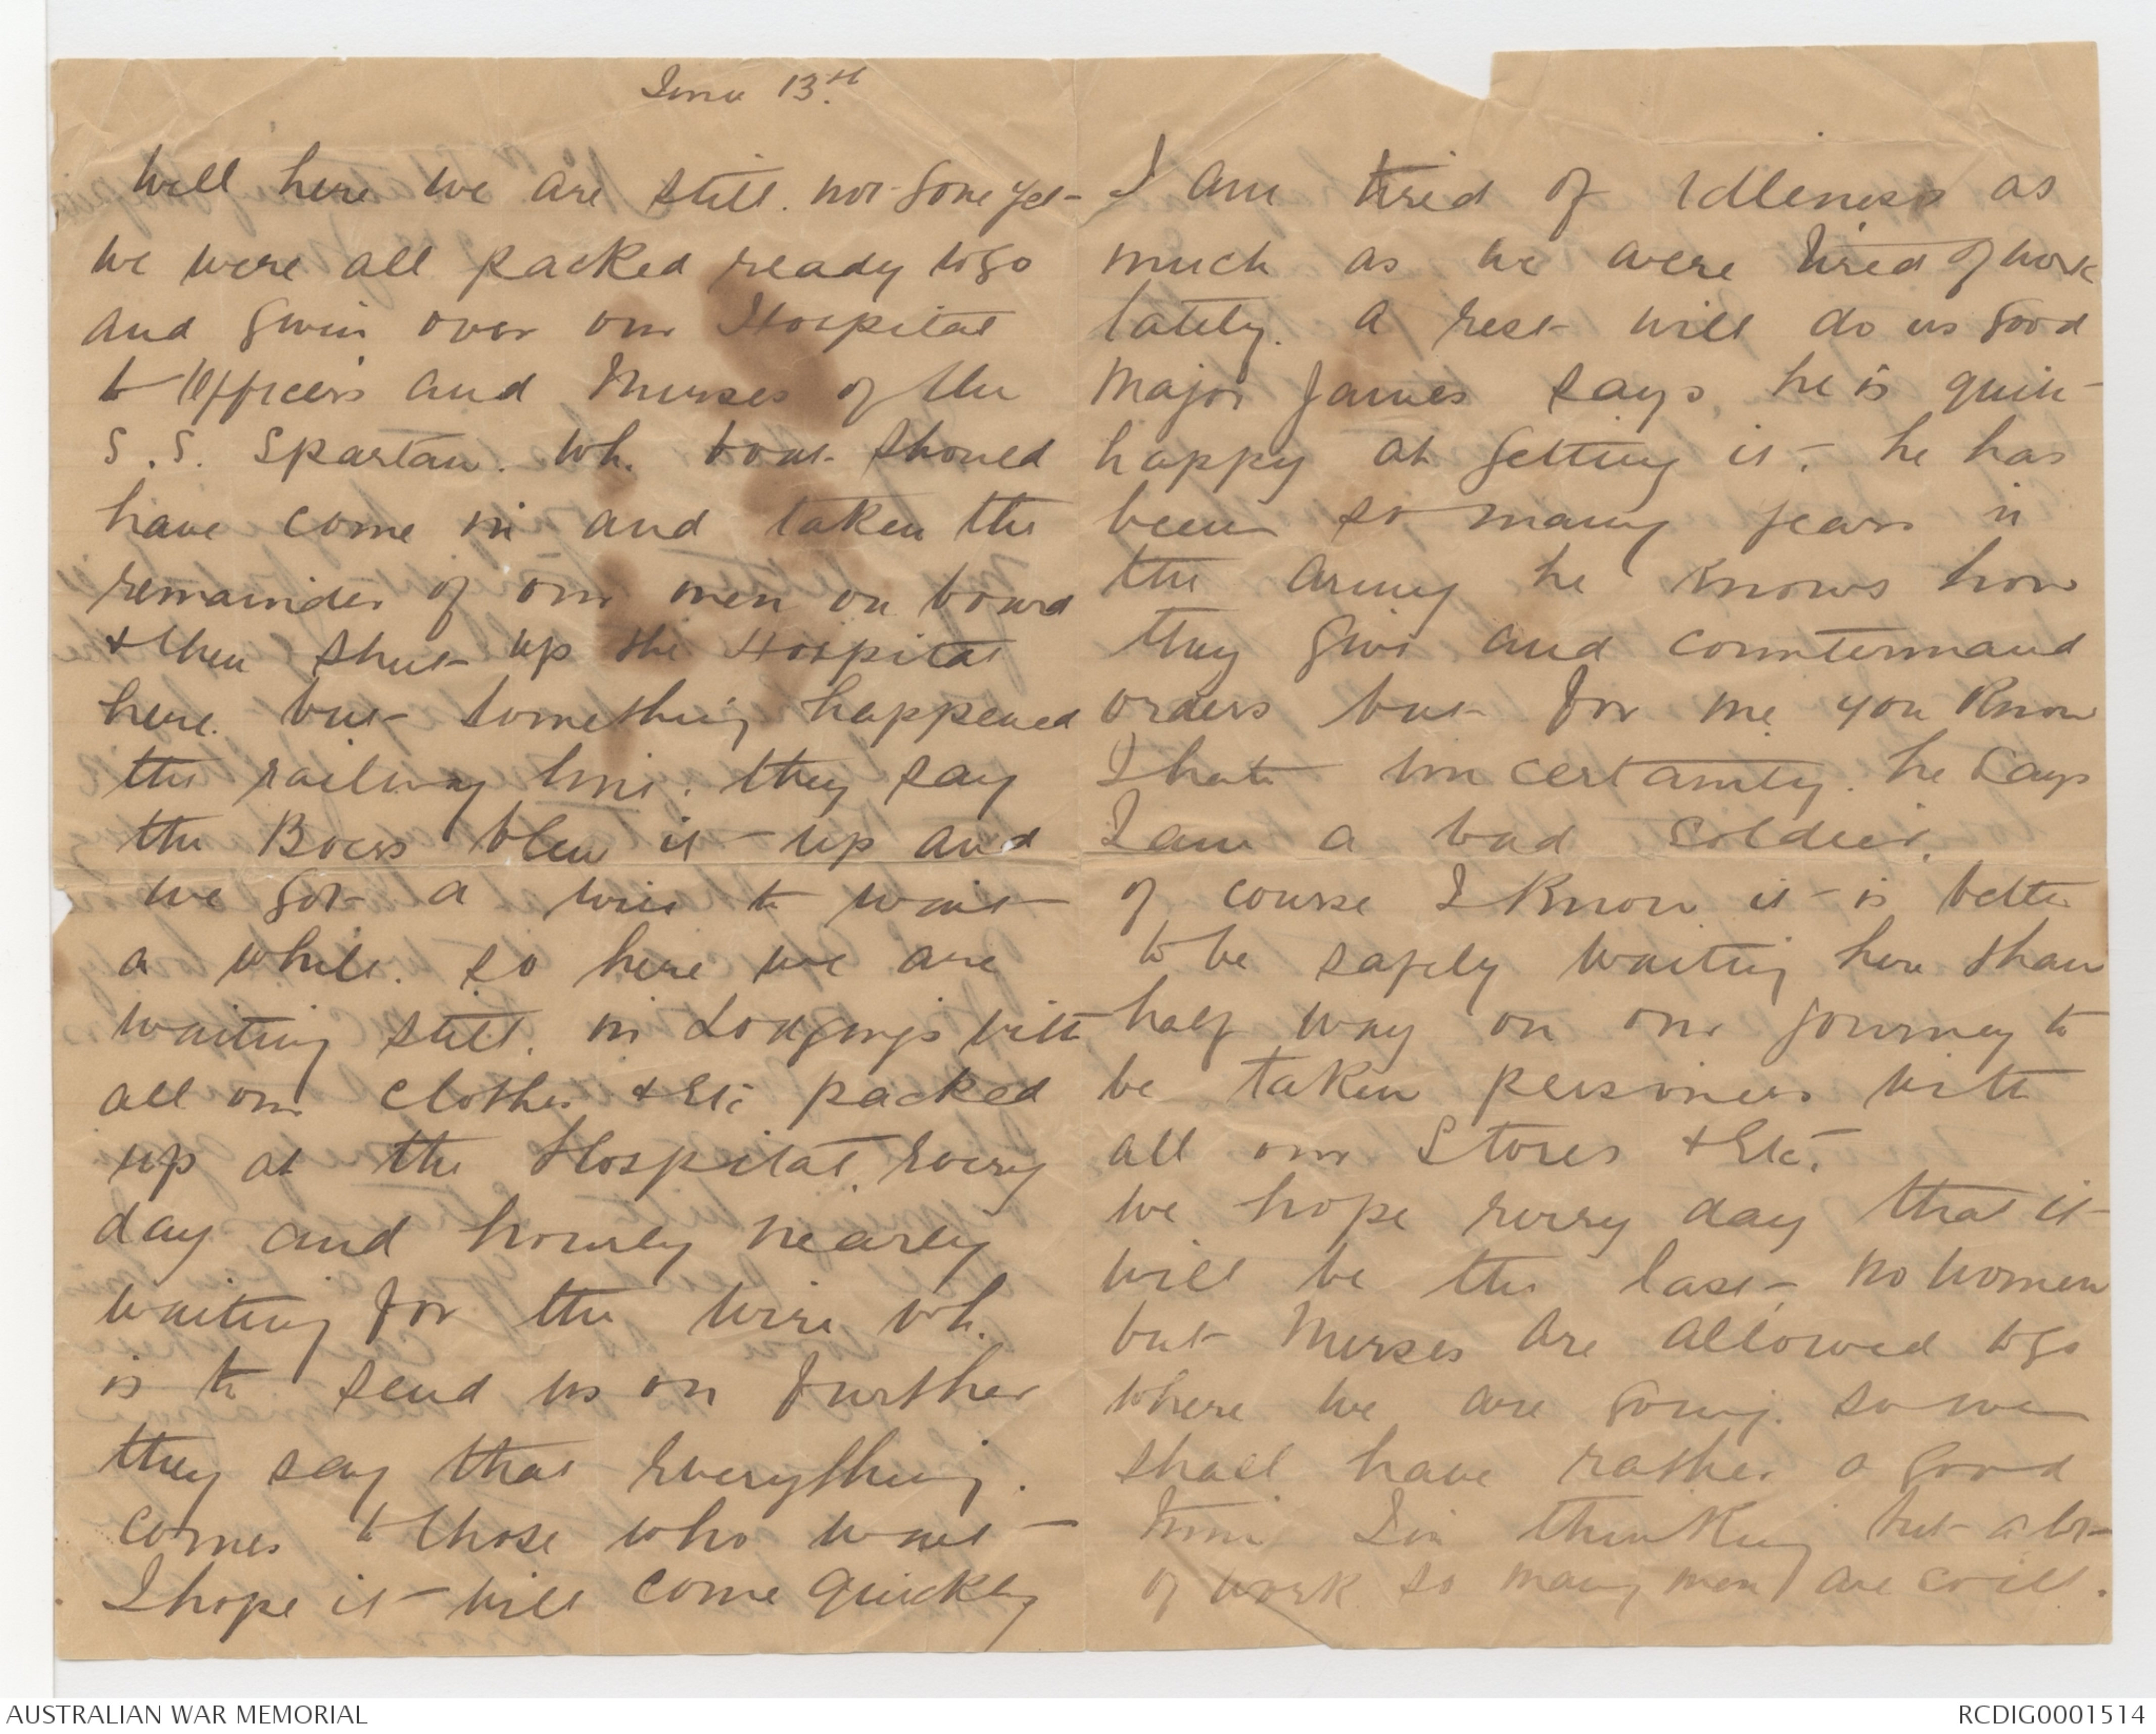 June 13th
Well here we are still. not gone yet-
we were all packed ready to go
and given over our Hospital
to Officers and Nurses of the
S.S. Spartan. wh. boat should
have come in and taken the
remainder of our men on board
& then shut up the Hospital
here. but something happened
the railway line. they say
the Boers blew it up and
we got a wire to wait
a while. so here we are
waiting still. in Lodgings with
all our clothes & Etc packed
up at the Hospital. Every
day and hourly nearly
waiting for the wire wh.
is to send us on further
they say that everything.
comes to those who wait
I hope it will come quickly
I am tired of Idleness as
much as we were tired of work
lately. a rest will do us good
Major James says, he is quite
happy at getting it. he has
been so many years in
the army he knows how
they give and countermand
orders but for me you know
I hate uncertainty. he says
I am a bad soldier.
of course I know it is better
to be safely waiting here than
half way on our journey to
be taken persioners with
all our Stores & Etc.
we hope every day that it
will be the last, no women
but Nurses are allowed to go
where we are going. so we
shall have rather a good
time I'm thinking but a lot
of work so many men are ill.
AUSTRALIAN WAR MEMORIAL
RCDIG0001514